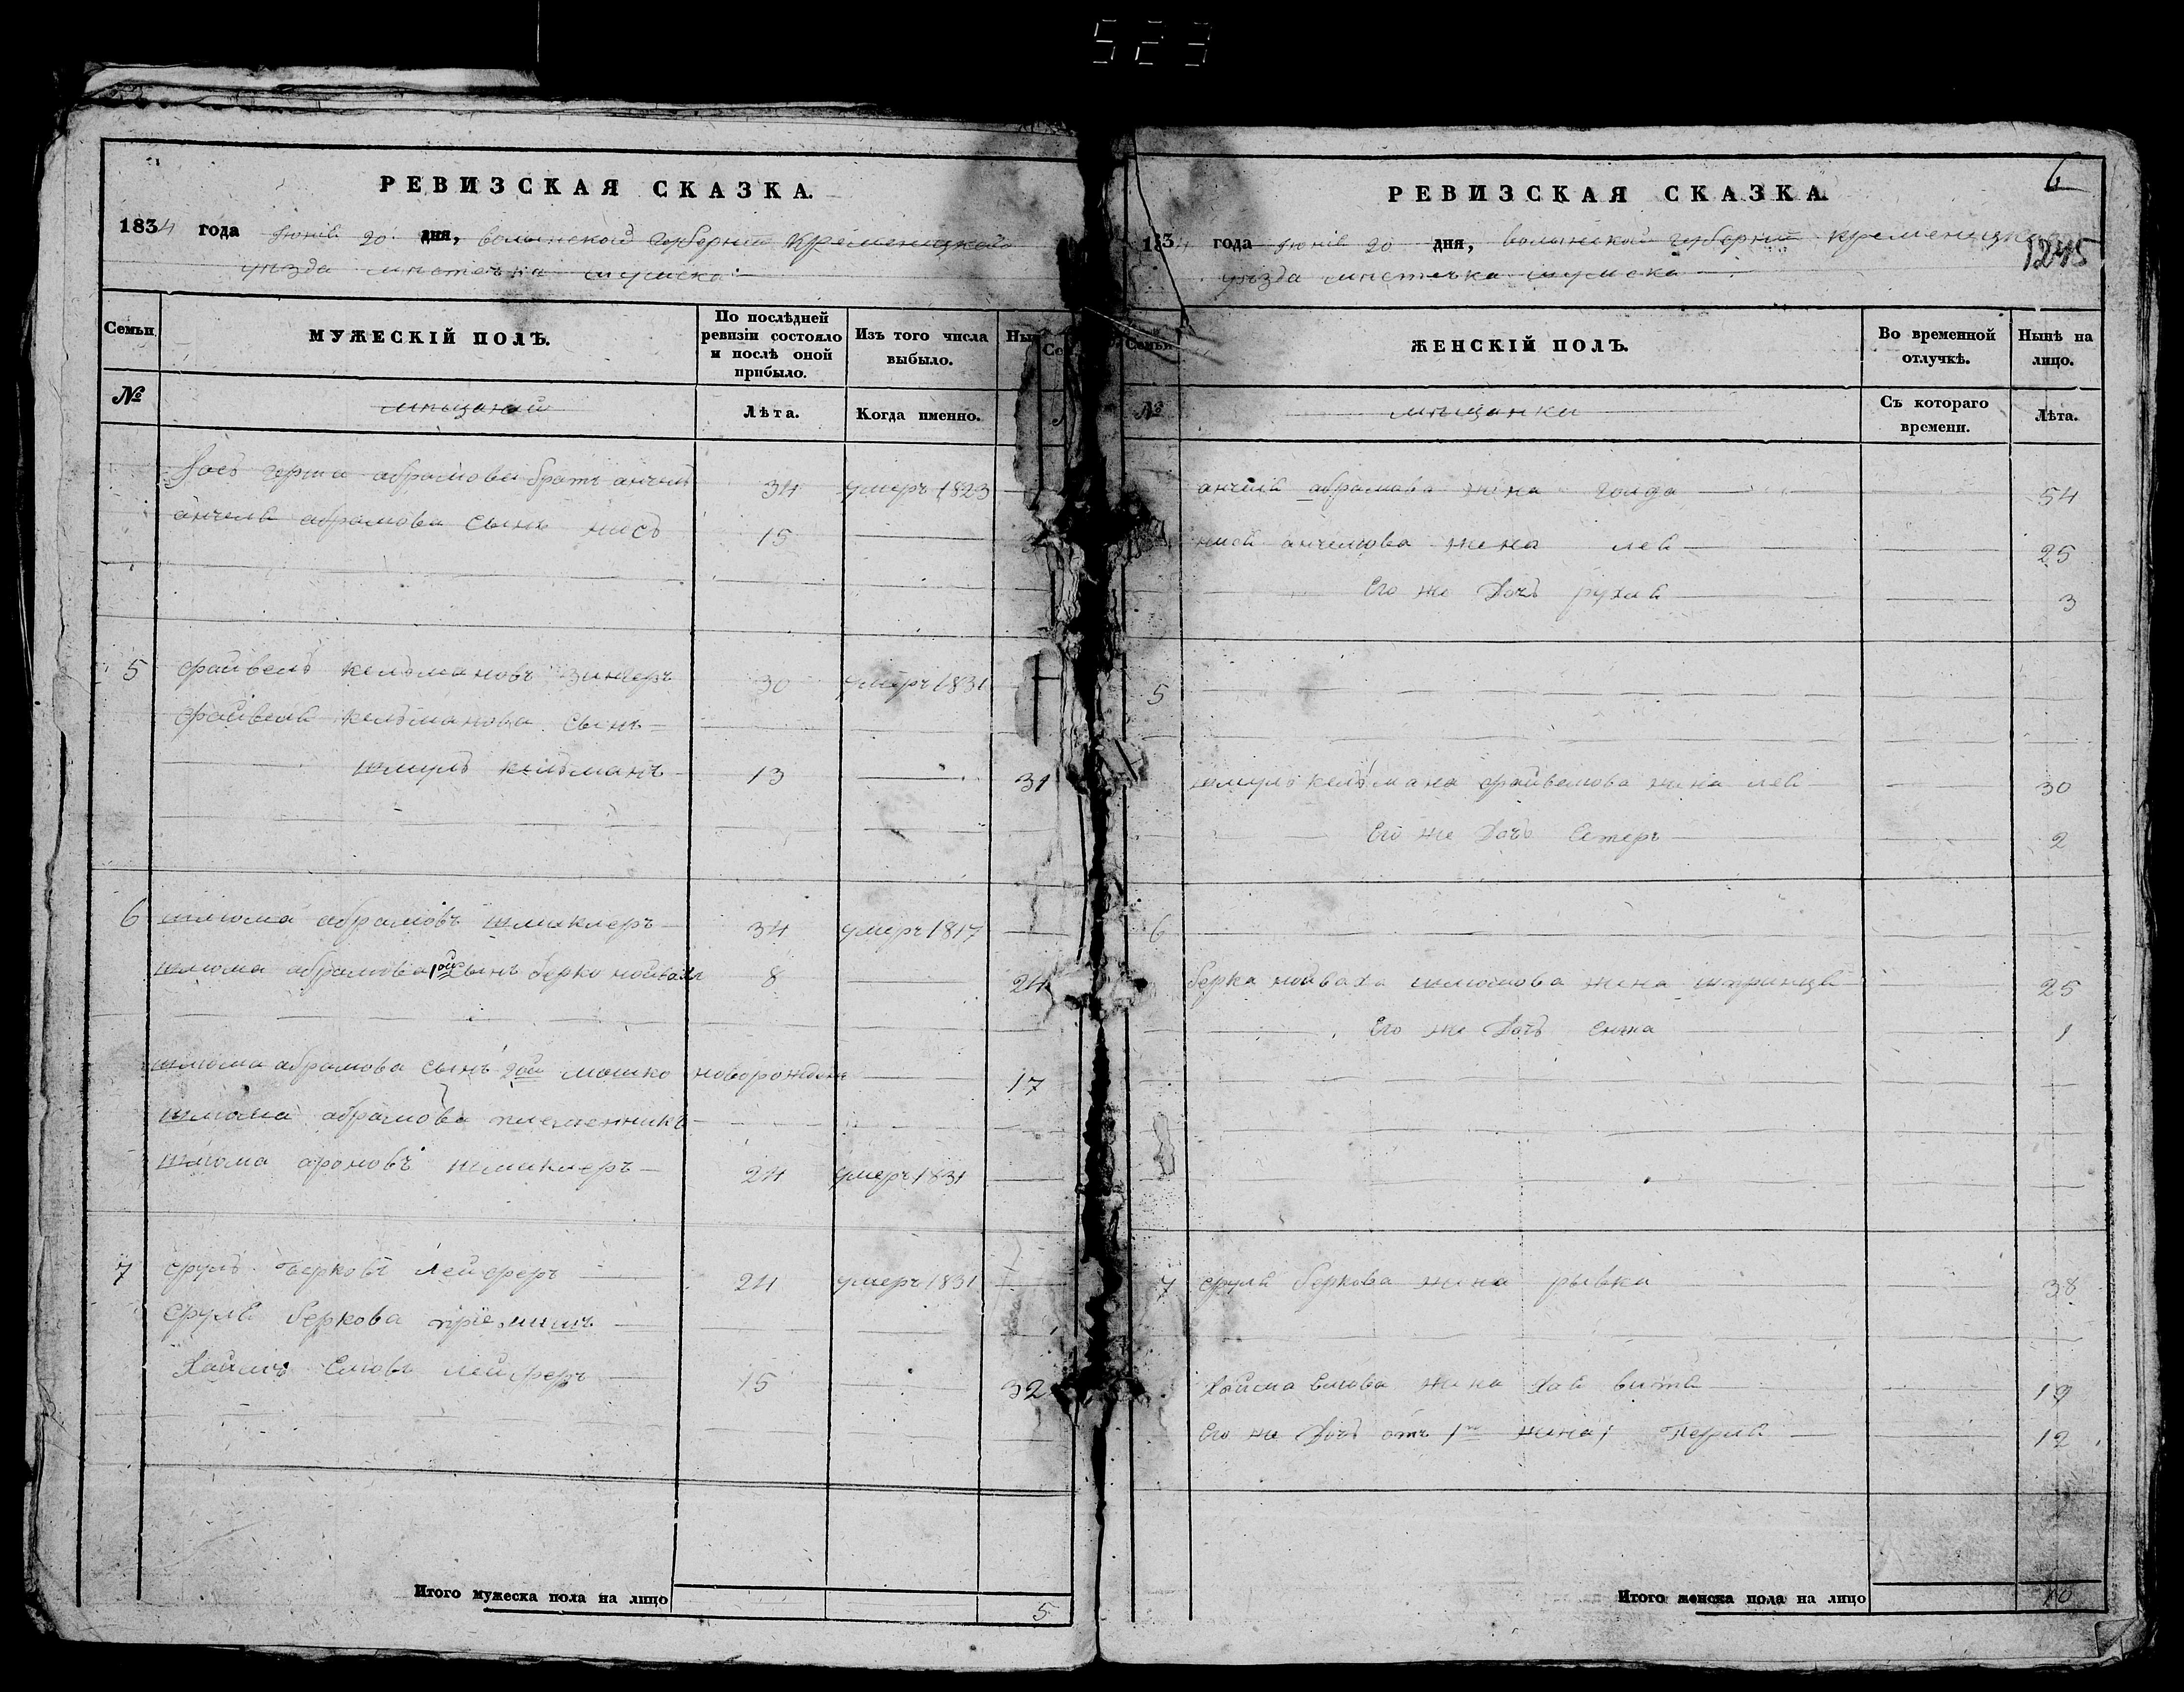 523
РЕВИЗСКАЯ СКАЗКА.
1834 года Юнiя 20 дня, волынской губернiи Кременецкаго
уѣзда мѣстечка шумска
Семьи
МУЖЕСКIЙ ПОЛЪ.
По послѣдней ревизiи состояло и послѣ оной прибыло.
Изъ того числа выбыло.
Ны
№
мѣщаней
Лѣта.
Когда именно.
герша абрамова братъ анчель 34 умеръ 1823
анчеля абрамова сынъ нисъ 15
5 файвель кельмановъ зингеръ 30 умеръ 1831
файвеля кельманова сынъ
шмуль кельманъ 13 31
6 шлюма абрамовъ шмиклеръ 34 умеръ 1817
шлюма абрамова 1ой сынъ берко нойвахъ 8 24
шлюма абрамова сынъ 2ой мошко новорожденъ 17
шлюма абрамова племенникъ
шлюма ароновъ шмиклеръ 24 умеръ 1831
7 сруль берковъ лейферъ 24 умеръ 1831
сруля беркова прiемишъ
Хаимъ Елювъ лейферъ 15 32
Итого мужеска пола на лицо 5
6
РЕВИЗСКАЯ СКАЗКА.
1834 года Юнiя 20 дня, волынской губернiи кременецкаго
1245
уѣзда мѣстечка шумска
Семьи
ЖЕНСКIЙ ПОЛЪ.
Во временной отлучкѣ.
Нынѣ на лицо.
№
мѣщанки
Съ котораго времени.
Лѣта.
анчеля абрамова жена голда 54
нися анчелова жена лея 25
Его же дочь рухля 3
5
шмуль кельмана файвелова жена лея 30
Его же дочь Естеръ 2
6
берка нойваха шлюмова жена шпринця 25
Его же дочь 1
7 сруля беркова жена рывка 38
Хаима Елюва жена Хая витя 19
Его же дочь отъ 1й жены Перля 12
Итого женска пола на лицо 10